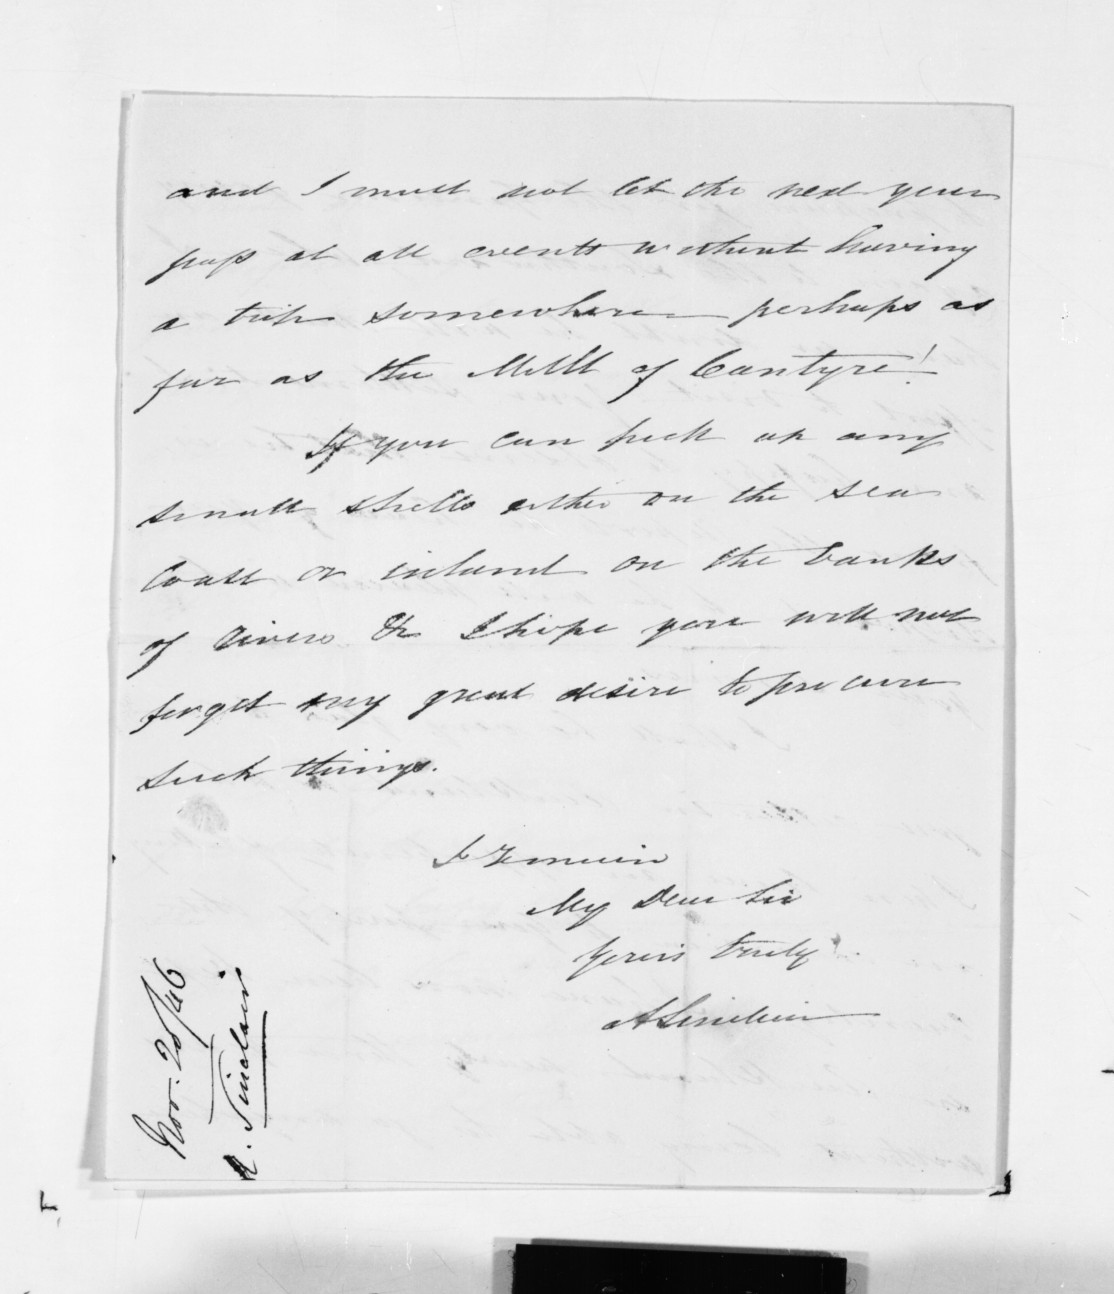 and I must not let the next year
pass at all events without having
a trip somewhere — perhaps as
far as the Mull of Cantyre!
If you can pick up any
small shells either on the sea
Coast or inland on the banks
of rivers &c I hope you will not
forget my great desire to procure
such things.
I remain
My Dear Sir
Yours truly
A Sinclair
Nov. 28/46
A. Sinclair